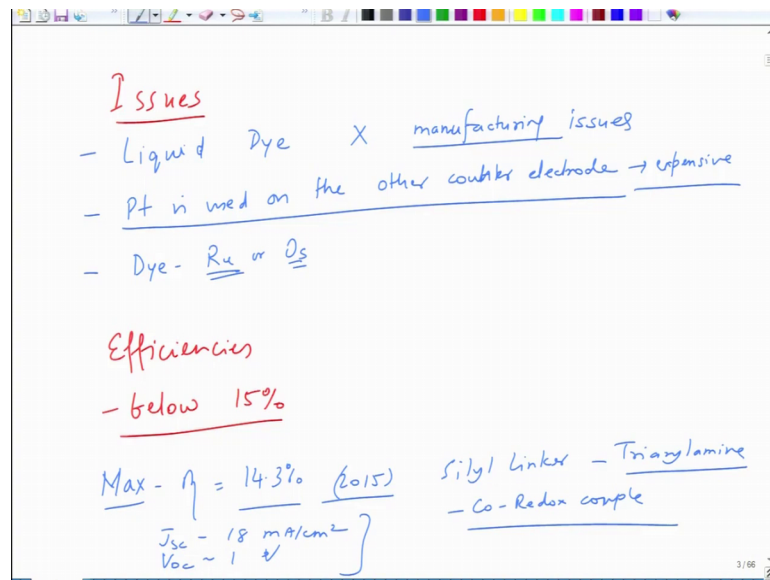 Issues
- Liquid Dye X manufacturing issues
- Pt is used on the other counter electrode → expensive
- Dye - Ru or Os
Efficiencies
- below 15%
Max - η = 14.3% (2015) Silyl Linker - Triarylamine
- Co-Redox couple
Jsc - 18 mA/cm²
Voc ~ 1 V
3 / 66